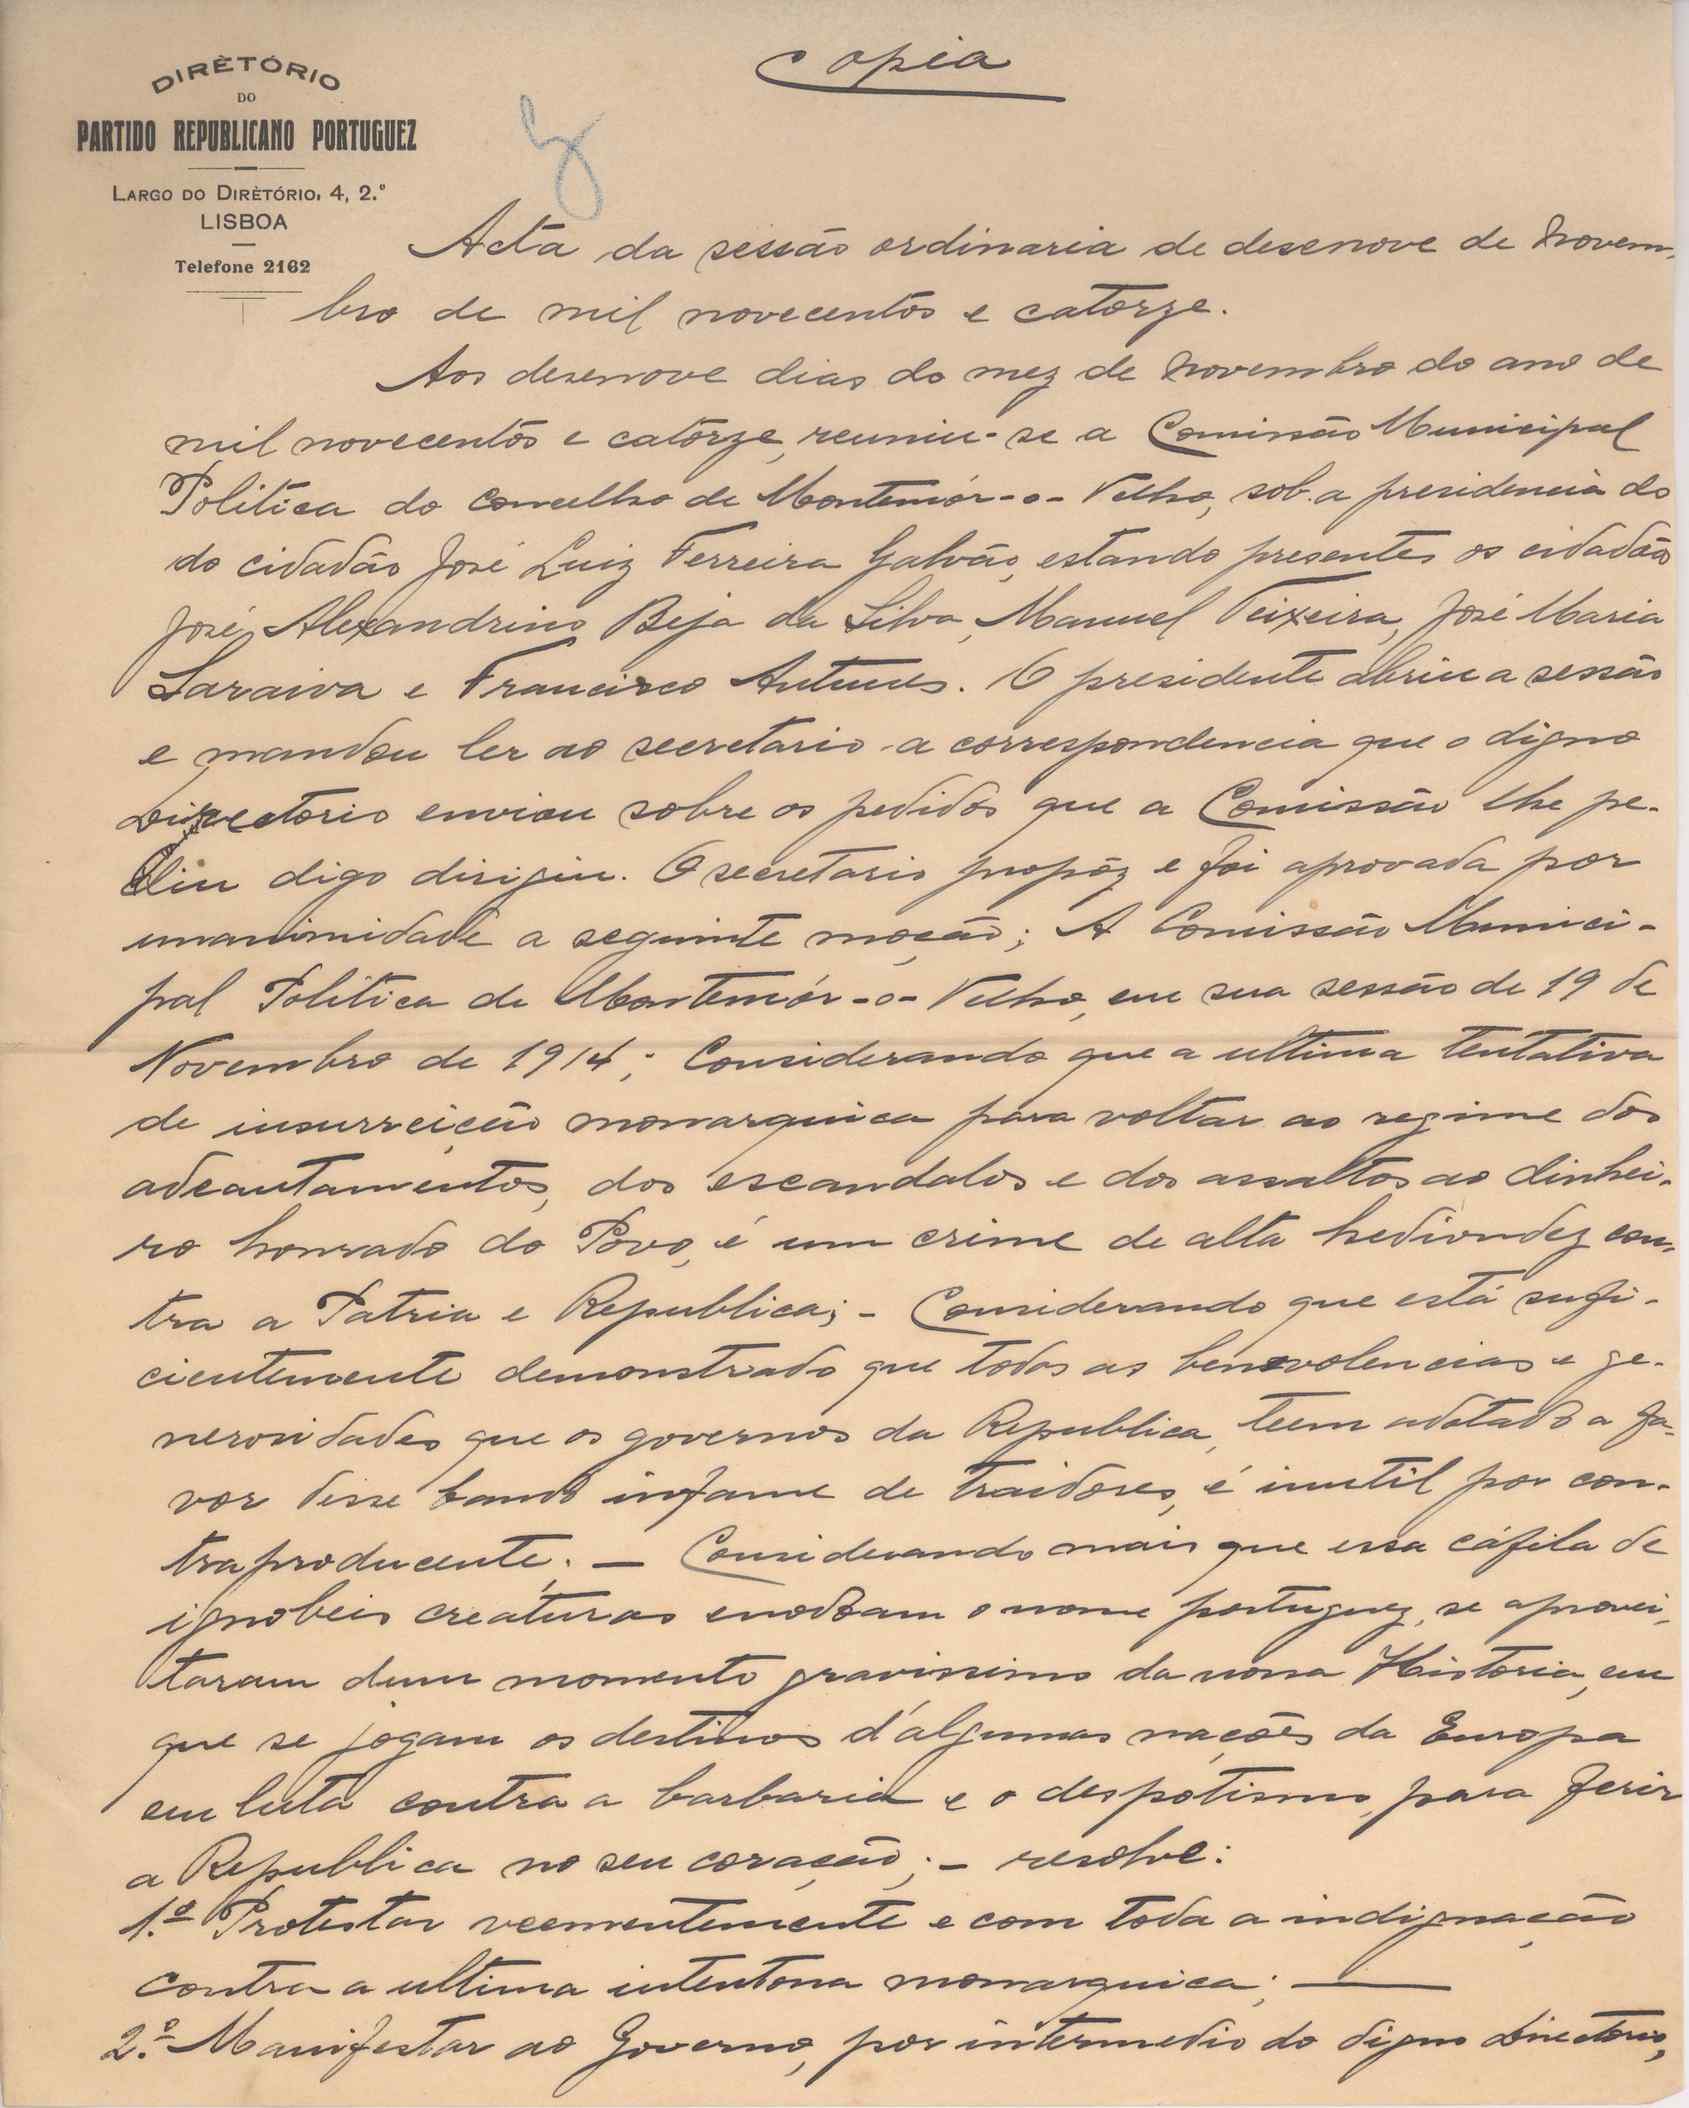 Copia
DIRÈTÓRIO
DO
PARTIDO REPUBLICANO PORTUGUEZ
LARGO DO DIRÈTÓRIO, 4, 2.º
LISBOA
Telefone 2162
Acta da sessão ordinaria de desenove de Novem-
bro de mil novecentos e catorze.
Aos desenove dias do mez de Novembro do ano de
mil novecentos e catorze, reuniu-se a Comissão Municipal
Politica do concelho de Montemór-o-Velho, sob a presidencia do
do cidadão José Luiz Ferreira Galvão, estando presentes os cidadãos
José Alexandrino Beja da Silva, Manuel Teixeira, José Maria
Saraiva e Francisco Antunes. O presidente abriu a sessão
e mandou ler ao secretario a correspondencia que o digno
Directorio enviou sobre os pedidos que a Comissão lhe pe-
diu digo dirigiu. O secretario propôz e foi aprovada por
unanimidade a seguinte moção; A Comissão Munici-
pal Politica de Montemór-o-Velho, em sua sessão de 19 de
Novembro de 1914; Considerando que a ultima tentativa
de insurreição monarquica para voltar ao regime dos
adeantamentos, dos escandalos e dos assaltos ao dinhei-
ro honrado do Povo, é um crime de alta hediondez con-
tra a Patria e Republica; - Considerando que está sufi-
cientemente demonstrado que todas as benevolencias e ge-
nerosidades que os governos da Republica, teem adotado a fa-
vor desse bando infame de traidores, é inutil por con-
traproducente; — Considerando mais que essa cáfila de
ignobeis creaturas enodoam o nome portuguez, se aprovei-
taram dum momento gravissimo da nossa Historia, em
que se jogam os destinos d'algumas nações da Europa
em luta contra a barbaria e o despotismo, para ferir
a Republica no seu coração; - resolve:
1.º Protestar veementemente e com toda a indignação
contra a ultima intentona monarquica; —
2.º Manifestar ao Governo, por intermedio do digno Directorio,